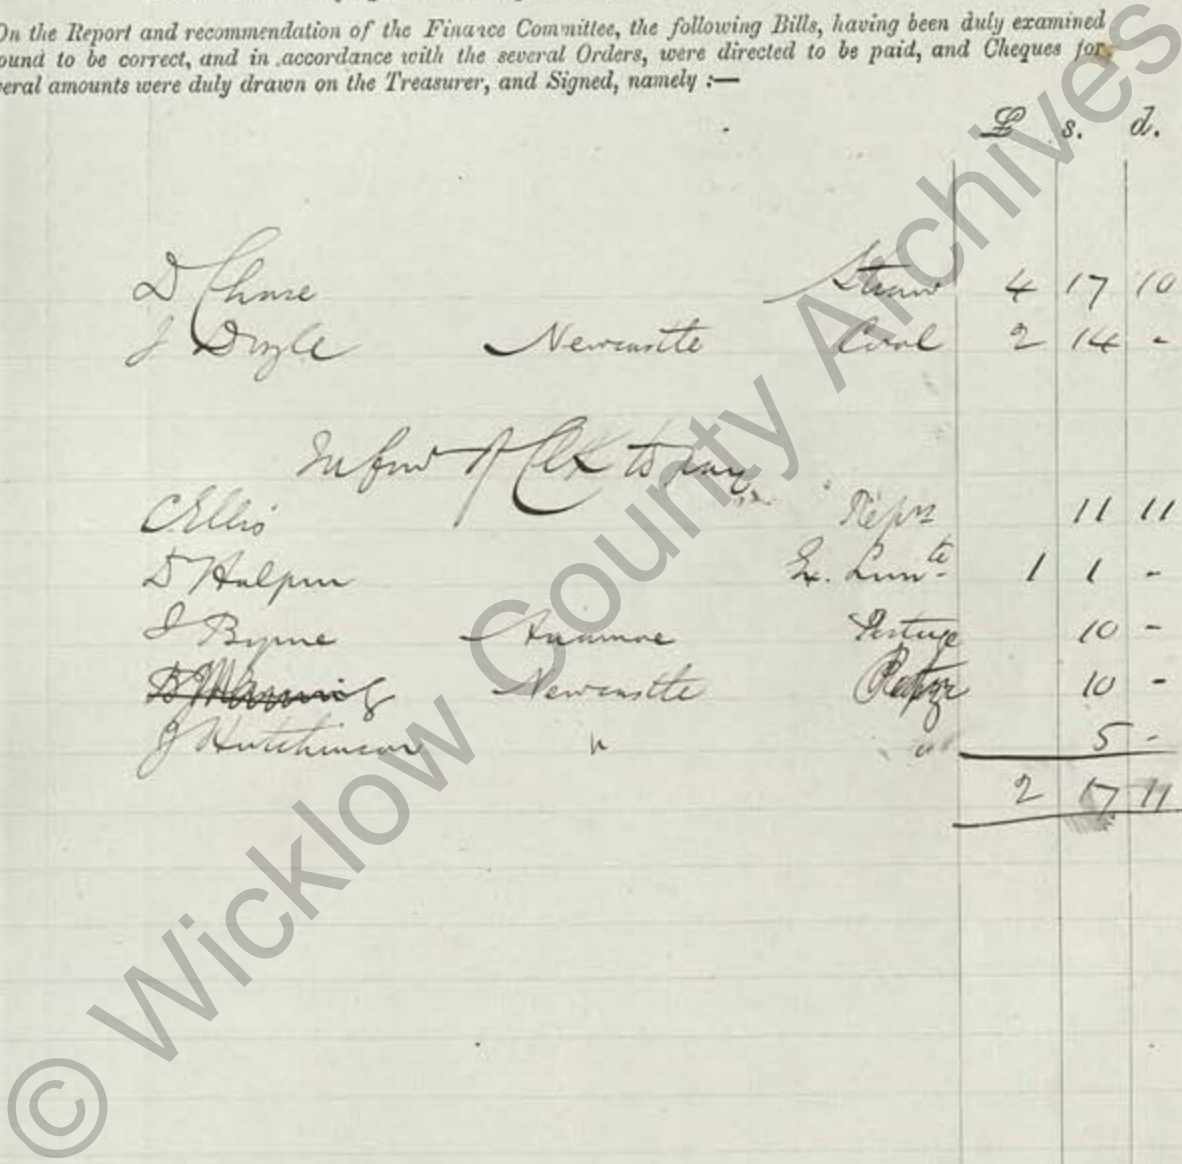 On the Report and recommendation of the Finance Committee, the following Bills, having been duly examined
ound to be correct, and in accordance with the several Orders, were directed to be paid, and Cheques for
veral amounts were duly drawn on the Treasurer, and Signed, namely :—
£ s. d.
D Chase Straw 4 17 10
J Doyle Newcastle Coal 2 14 -
In favr of Clk to pay
C. Ellis Reprs 11 11
D Halpin Ex. Lunte. 1 1 -
J Byrne Anamoe Portage 10 -
Newcastle 10 -
J Hutchinson " " 5 -
2 17 11
© Wicklow County Archives